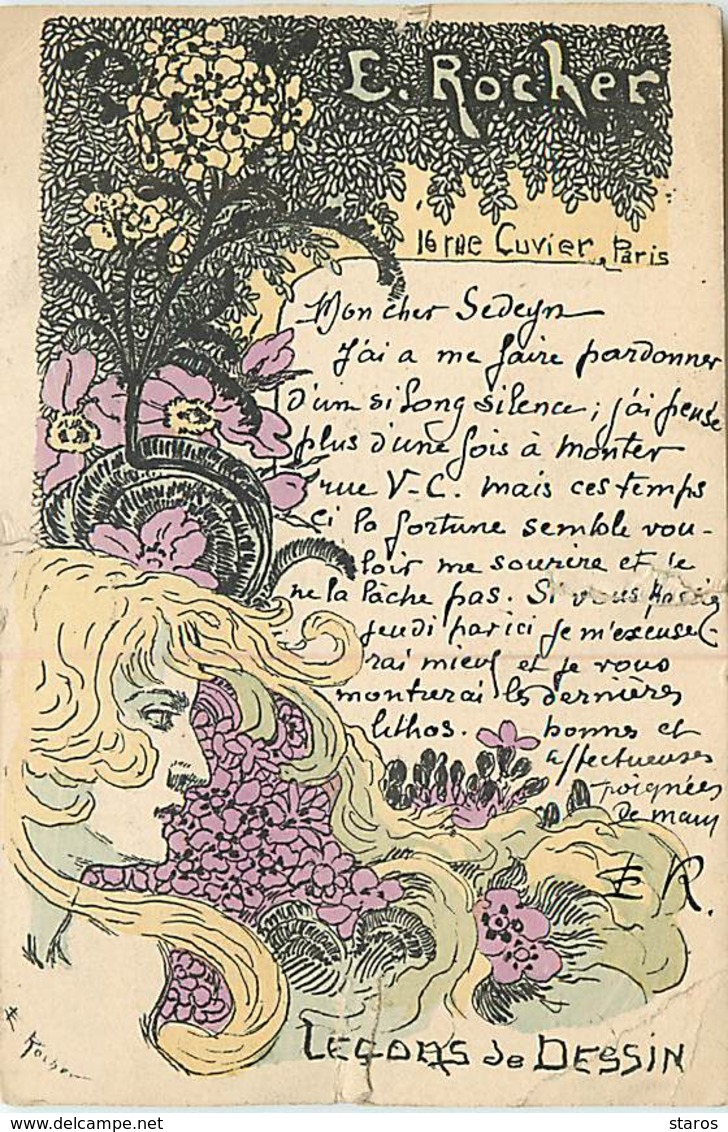 E. Rocher
16 rue Cuvier, Paris
Mon cher Sedeyn
J'ai a me faire pardonner
d'un si long silence ; j'ai pensé
plus d'une fois à monter
rue V-C. mais ces temps
ci la fortune semble vou-
loir me sourire et je
ne la lâche pas. Si vous passez
jeudi par ici je m'excuse-
rai mieux et je vous
montrerai les dernières
lithos. bonnes et
affectueuses
poignées
de main
ER.
E Rocher
Leçons de Dessin
staros